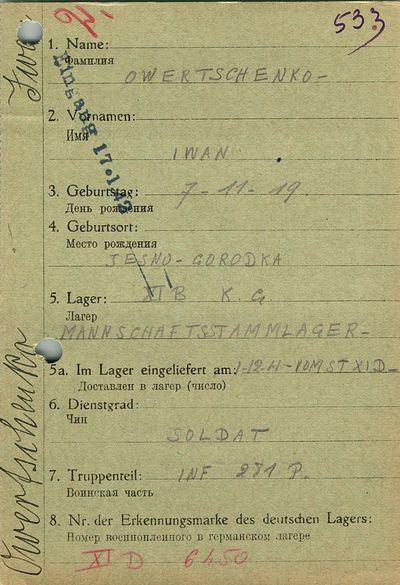 533
Eingang 17.1.42
1. Name:
Фамилия
OWERTSCHENKO-
2. Vornamen:
Имя
IWAN
3. Geburtstag: 7-11-19.
День рождения
4. Geburtsort:
Место рождения
JESNO-GORODKA
5. Lager: XI B K. G.
Лагер
MANNSCHAFTSSTAMMLAGER-
5a. Im Lager eingeliefert am: 1-12-41-VOM ST XI D-
Доставлен в лагер (число)
6. Dienstgrad:
Чин
SOLDAT
7. Truppenteil: INF 281 P.
Воинская часть
8. Nr. der Erkennungsmarke des deutschen Lagers:
Номер военнопленного в германском лагере
XI D 6450
Owertschenko Iwan